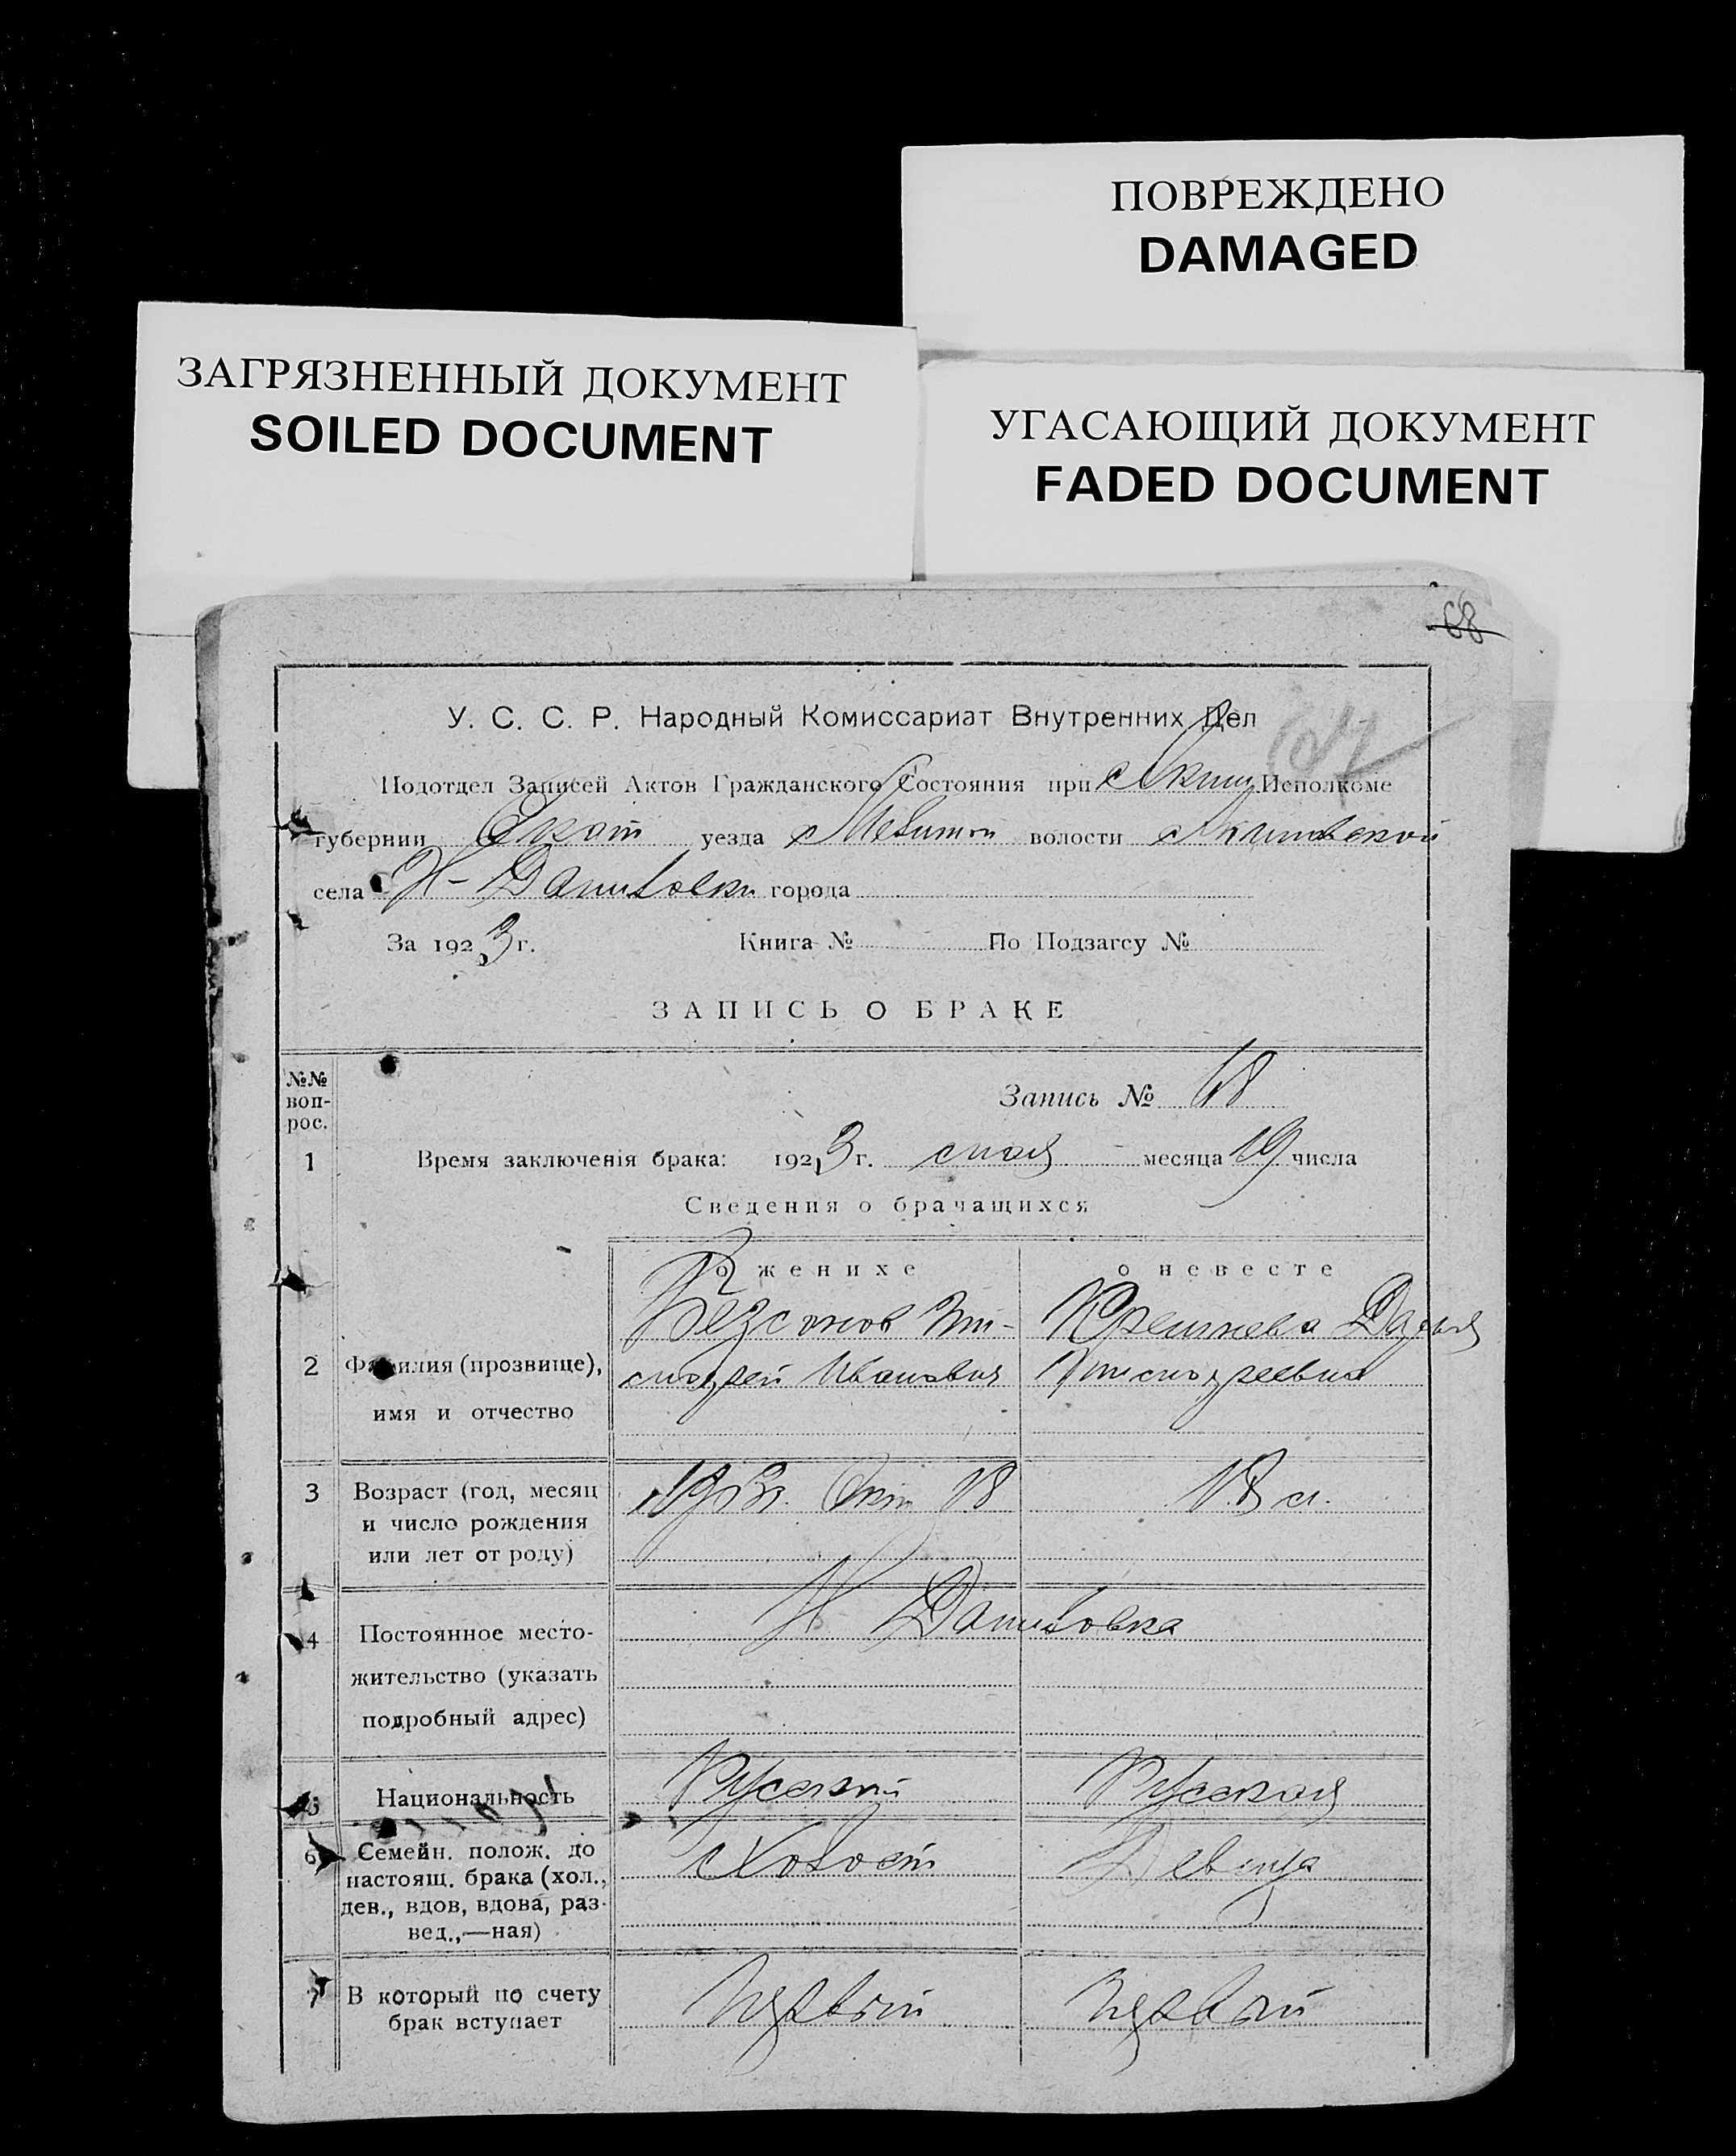 ПОВРЕЖДЕНО
DAMAGED
ЗАГРЯЗНЕННЫЙ ДОКУМЕНТ
SOILED DOCUMENT
УГАСАЮЩИЙ ДОКУМЕНТ
FADED DOCUMENT
68
У. С. С. Р. Народный Комиссариат Внутренних Дел
Подотдел Записей Актов Гражданского Состояния при Исполкоме
губернии уезда Мелитоп волости Акимовской
села Н-Даниловки города
За 1923 г. Книга № По Подзагсу №
ЗАПИСЬ О БРАКЕ
№№ воп-рос.
Запись № 68
1 Время заключенія брака: 1923 г. мая месяца 19 числа
Сведения о брачащихся
о женихе о невесте
Безсонов Ти- Дарья
2 Фамилия (прозвище), мофей Иванович Тимофеевна
имя и отчество
3 Возраст (год, месяц 1903г. Окт 18 18 л.
и число рождения
или лет от роду)
Н Даниловка
4 Постоянное место-
жительство (указать
подробный адрес)
5 Национальность Русский Русская
6 Семейн. полож. до Холост Девица
настоящ. брака (хол.,
дев., вдов, вдова, раз-
вед.,—ная)
7 В который по счету первый первый
брак вступает